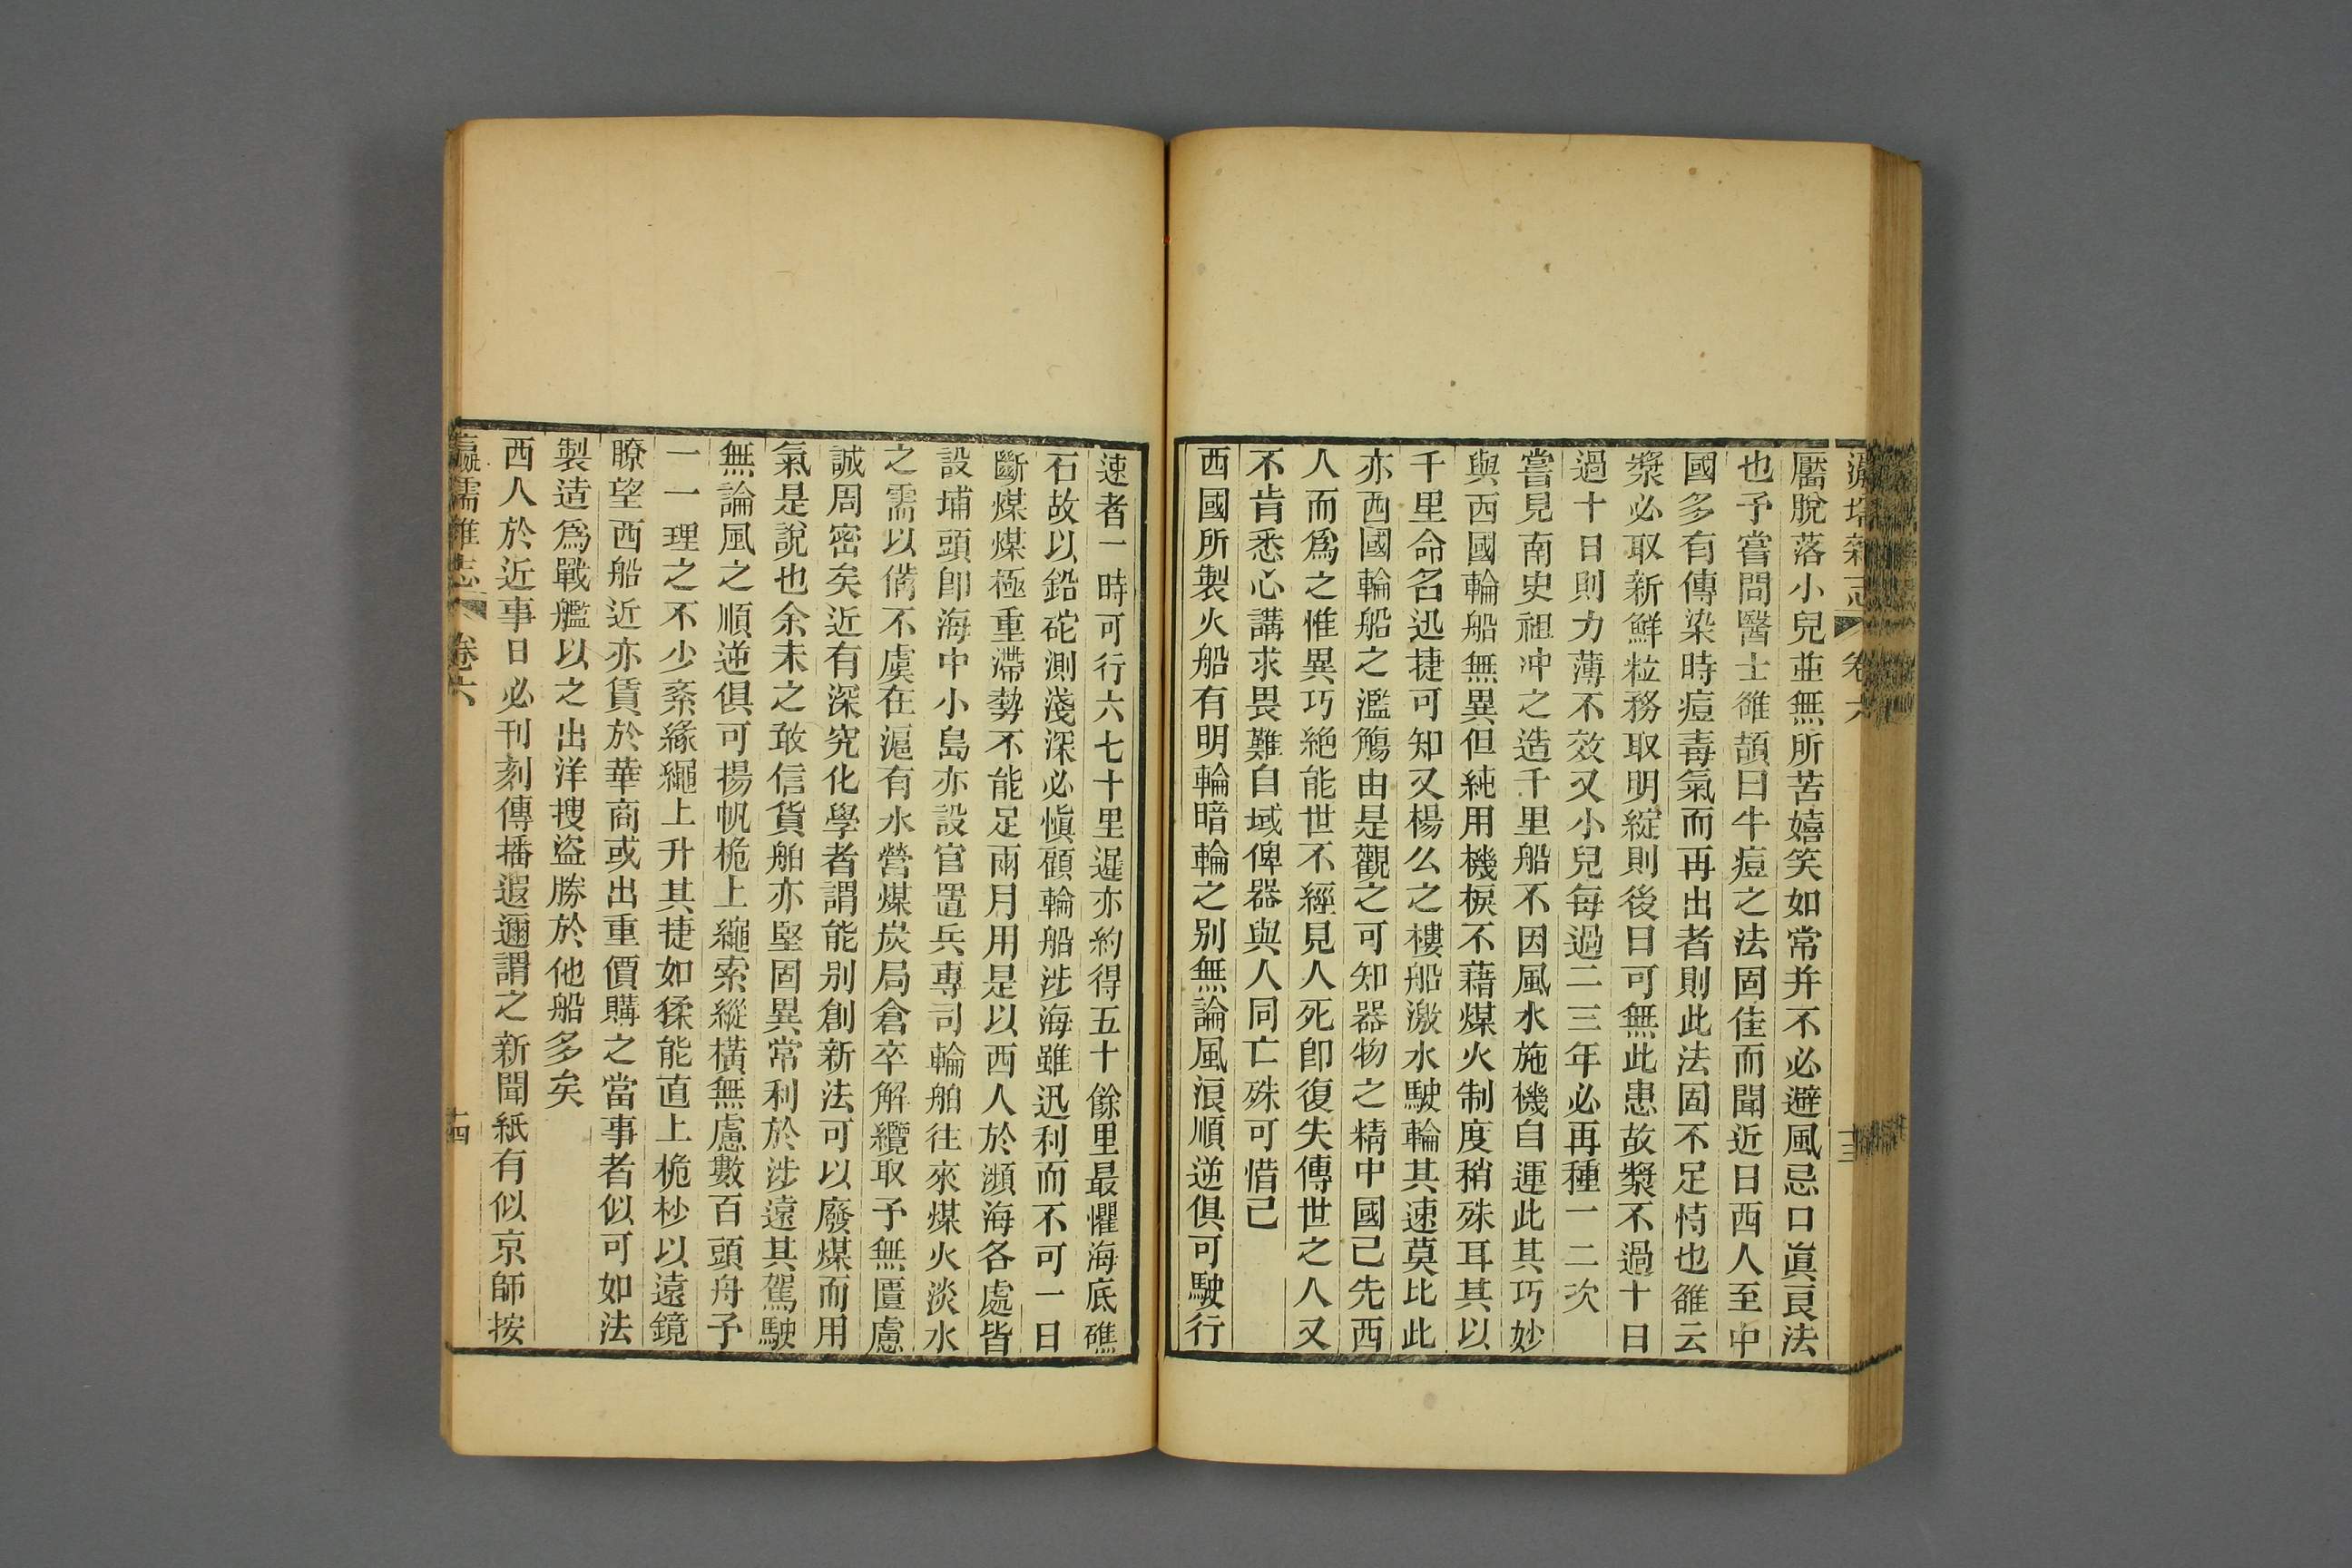 瀛壖雜志 卷六 十三
靨脫落小兒並無所苦嬉笑如常并不必避風忌口眞良法
也予嘗問醫士雒頡曰牛痘之法固佳而聞近日西人至中
國多有傳染時痘毒氣而再出者則此法固不足恃也雒云
漿必取新鮮粒務取明綻則後日可無此患故漿不過十日
過十日則力薄不效又小兒每過二三年必再種一二次
嘗見南史祖冲之造千里船不因風水施機自運此其巧妙
與西國輪船無異但純用機棙不藉煤火制度稍殊耳其以
千里命名迅捷可知又楊么之樓船激水駛輪其速莫比此
亦西國輪船之濫觴由是觀之可知器物之精中國已先西
人而爲之惟異巧絶能世不經見人死卽復失傳世之人又
不肯悉心講求畏難自域俾器與人同亡殊可惜已
西國所製火船有明輪暗輪之别無論風浪順逆俱可駛行
速者一時可行六七十里遲亦約得五十餘里最懼海底礁
石故以鉛砣測淺深必愼顧輪船涉海雖迅利而不可一日
斷煤煤極重滯勢不能足兩月用是以西人於瀕海各處皆
設埔頭卽海中小島亦設官置兵專司輪舶往來煤火淡水
之需以備不虞在滬有水營煤炭局倉卒解纜取予無匱慮
誠周密矣近有深究化學者謂能别創新法可以廢煤而用
氣是說也余未之敢信貨舶亦堅固異常利於涉遠其駕駛
無論風之順逆俱可揚帆桅上繩索縱橫無慮數百頭舟子
一一理之不少紊緣繩上升其捷如猱能直上桅杪以遠鏡
瞭望西船近亦賃於華商或出重價購之當事者似可如法
製造爲戰艦以之出洋搜盜勝於他船多矣
西人於近事日必刊刻傳播遐邇謂之新聞紙有似京師按
瀛壖雜志 卷六 十四